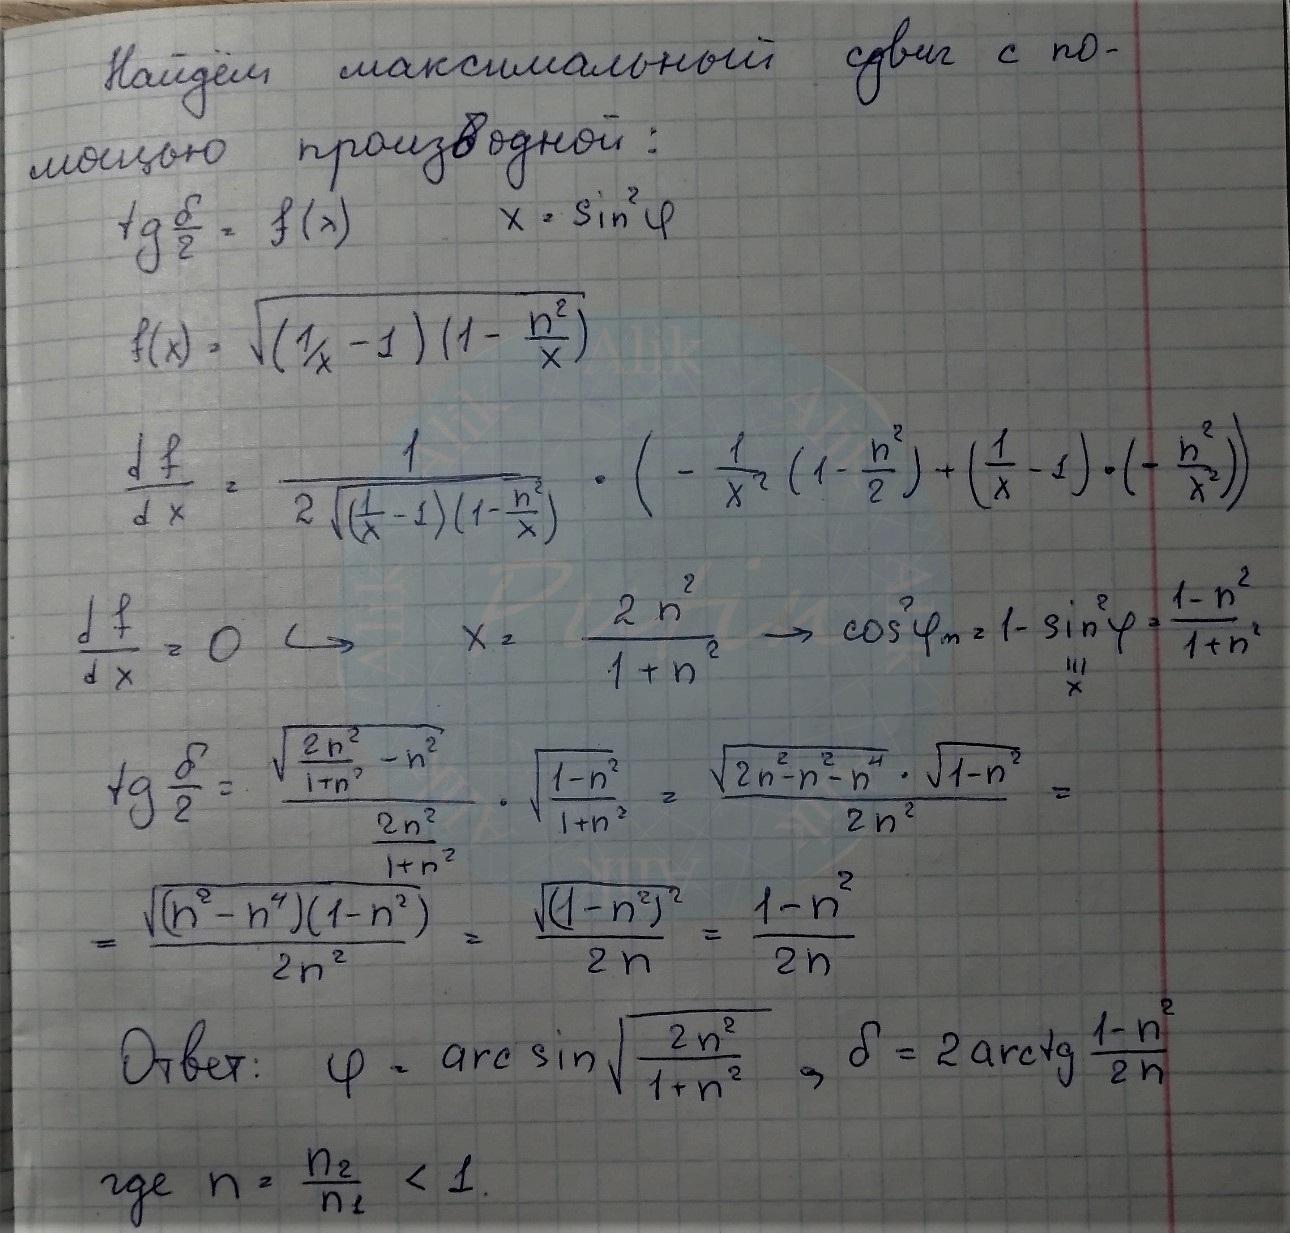 Найдём максимальный сдвиг с по-
мощью производной:
tg δ/2 = f(x) x = sin²φ
f(x) = √((1/x - 1)(1 - n²/x))
df/dx = 1/(2√((1/x - 1)(1 - n²/x))) · (- 1/x² (1 - n²/2) + (1/x - 1)·(- n²/x²))
df/dx = 0 ↪ x = 2n²/(1+n²) → cos²φₘ = 1 - sin²φ = (1-n²)/(1+n²)
x
tg δ/2 = √(2n²/(1+n²) - n²)/(2n²/(1+n²)) · √((1-n²)/(1+n²)) = √(2n²-n²-n⁴) · √(1-n²)/(2n²) =
= √((n²-n⁴)(1-n²))/(2n²) = √((1-n²)²)/(2n) = (1-n²)/(2n)
Ответ: φ = arcsin √(2n²/(1+n²)), δ = 2arctg (1-n²)/(2n)
где n = n₂/n₁ < 1.
Alik
Alik
Alik
Alik
Alik
Alik
Alik
Alik